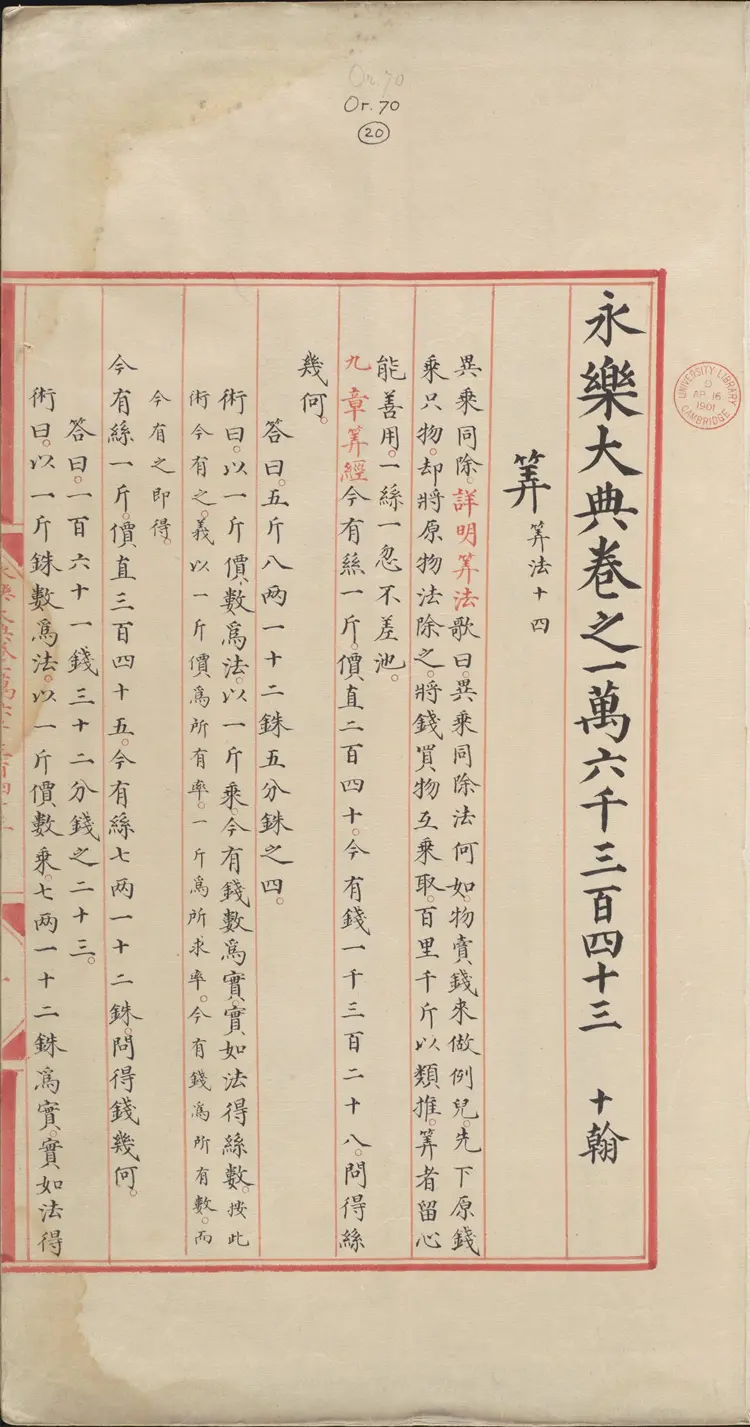 Or. 70
Or. 70
20
UNIVERSITY LIBRARY
AP. 16
1901
CAMBRIDGE
永樂大典卷之一萬六千三百四十三 十翰
筭 筭法十四
異乘同除。詳明筭法歌曰。異乘同除法何如。物賣錢來做例兒。先下原錢
乘只物。却將原物法除之。將錢買物互乘取。百里千斤以類推。筭者留心
能善用。一絲一忽不差池。
九章筭經今有絲一斤。價直二百四十。今有錢一千三百二十八。問得絲
幾何。
答曰。五斤八兩一十二銖五分銖之四。
術曰。以一斤價數爲法。以一斤乘。今有錢數爲實。實如法得絲數。按此
術今有之。義以一斤價爲所有率。一斤爲所求率。今有錢爲所有數。而
今有之即得。
今有絲一斤。價直三百四十五。今有絲七兩一十二銖。問得錢幾何。
答曰。一百六十一錢三十二分錢之二十三。
術曰。以一斤銖數爲法。以一斤價數乘。七兩一十二銖爲實。實如法得